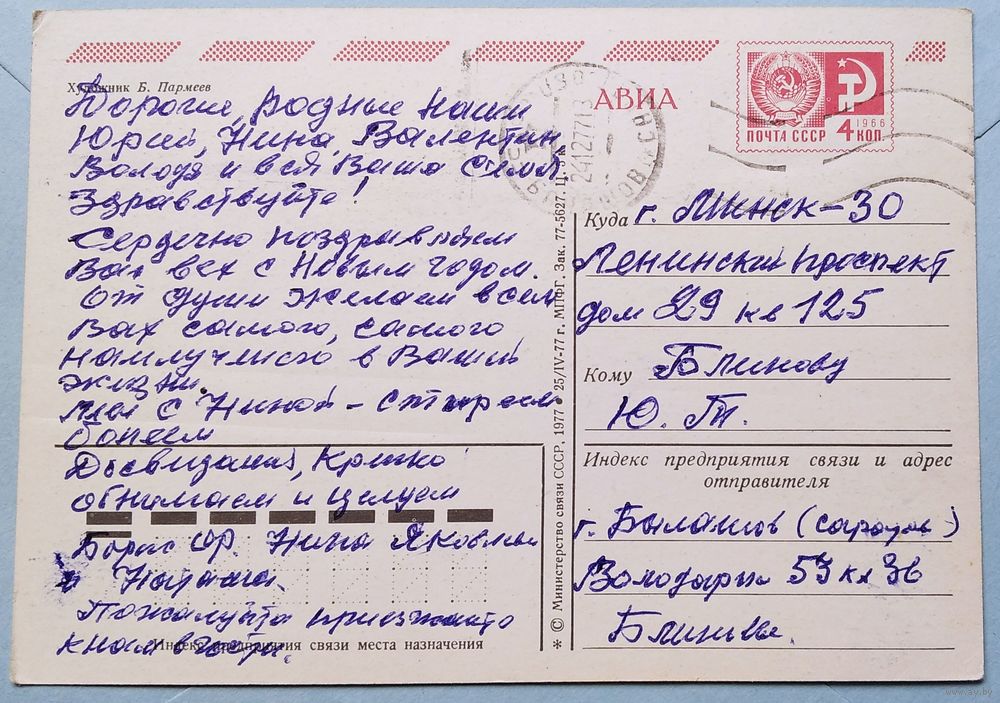 Художник Б. Пармеев
Дорогие, родные наши
Юрий, Нина, Валентин
Володя и вся Ваша семья
Здравствуйте!
Сердечно поздравляем
Вас всех с Новым годом.
От души желаем всем
Вах самого, самого
наилучшего в Вашей
жизни.
Мы с Ниной - стареем
болеем
Досвидания, Крепко
обнимаем и целуем
Борис Нина Яковлевна
и Наташа.
Пожалуйста приезжайте
к нам в гости.
Индекс предприятия связи места назначения
АВИА
ПОЧТА СССР 4 КОП. 1966
24127713
Куда г. Минск-30
Ленинский проспект
дом 29 кв 125
Кому Блинову
Ю. Т.
Индекс предприятия связи и адрес
отправителя
г. Балашов (Саратов)
Володарск 59 кв 36
Блиновы.
* © Министерство связи СССР, 1977 • 25/IV-77 г. МПФГ. Зак. 77-5627. Ц. 5 к.
www.ay.by